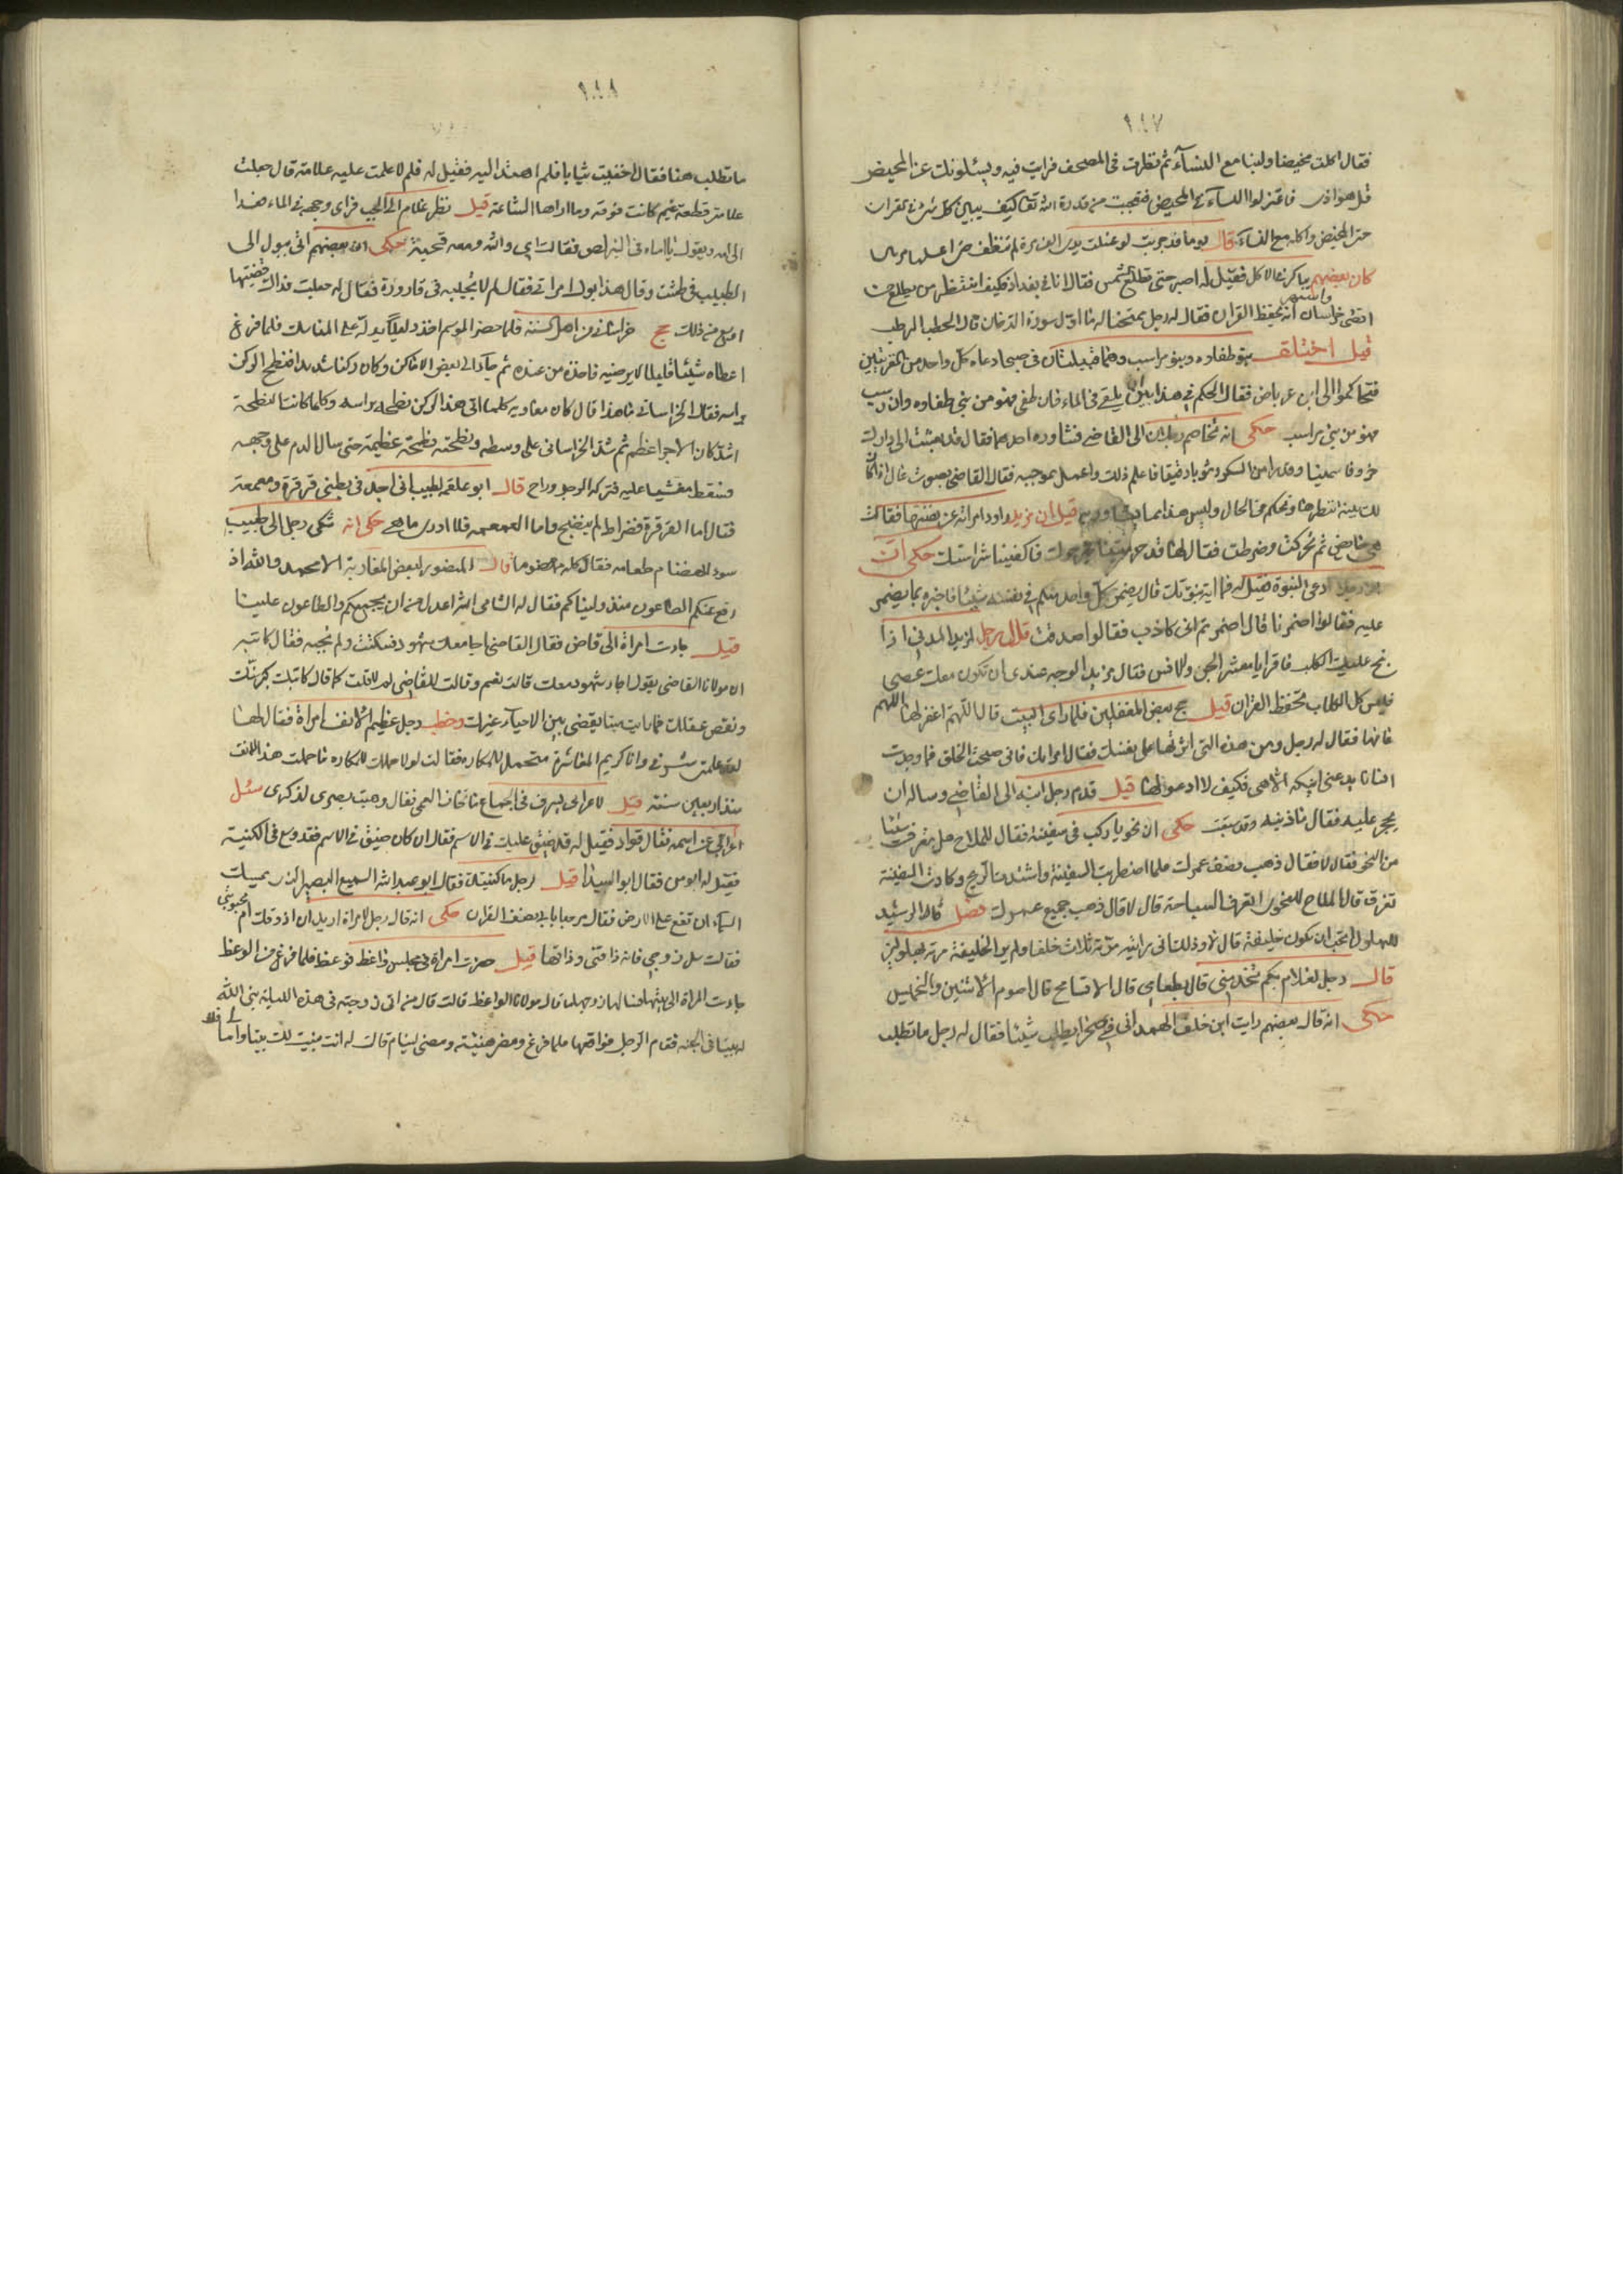 ٩١٧
فقال اكلت مخيضا ولبنا مع النسآء ثم نظرت فى المصحف فرايت فيه ويسئلونك عن المحيض
قل هو اذى فاعتزلوا النسآء فى المحيض فتعجبت من قدرة الله تعا كيف يبين كل شئ فى القران
حتى المخيض واكله مع النسآء قال يوما قد جربت لو غسلت يدى الف مرة لم تنظف حتى اغسلها مرتين
كان بعضهم يباكر على الاكل فقيل له اصبر حتى تطلع الشمس فقال انا فى بغداد فكيف انتظر من يطلع من
اقصى خراسان انه يحفظ القران فقال له رجل يمتحنه ما اول سورة الدخان قال الحطب الرطب
قيل اختلف بنو طفاوه وبنو راسب وهما قبيلتان فى صبى ادعاه كل واحد من الفريقين
فتحاكموا الى ابن عرباض فقال الحكم فى هذا بين ان يلقى فى الماء فان طفى فهو من بنى طفاوه وان رسب
فهو من بنى راسب حكى انه تخاصم رجلان الى القاضى فشاوره احدهما فقال قد بعثت الى دارك
خروفا سمينا ومن السكر فاعلم ذلك واعمل بموجبه فقال القاضى بصوت عال اذا كان
لك بينة انتظرها ونحكم فى الحال وليس هذا مما يشاور به قيل ان مزيد راود امراته عن نفسها فقالت
هى حائض ثم تحركت وضرطت فقال لها قد حرمتنا خير حرك فاكفينا شر استك حكى ان
رجلا ادعى النبوة فقيل له فما اية نبوتك قال يضمر كل واحد منكم فى نفسه شيئا فاخبره بما يضمر
عليه فقالوا اضمرنا قال اضمرتم انى كاذب فقالوا صدقت قال رجل لمزيد المدنى اذا
نبح عليك الكلب فاقرا يا معشر الجن والانس فقال مزيد الوجه عندى ان تكون معك عصى
فليس كل الكلاب تحفظ القران قيل حج بعض المغفلين فلما راى البيت قال اللهم اغفر لها اللهم
فانها فقال له رجل ومن هذه التى اثرتها على نفسك فقال امراتك فانى صحبت الخلق فما وجدت
انسانا الا هى فكيف لا ادعو لها قيل قدم رجل ابنه الى القاضى وساله ان
يحجر عليه فقال حكى ان نحويا ركب فى سفينة فقال للملاح هل تعرف شيئا
من النحو فقال لا فقال ذهب نصف عمرك فلما اضطربت السفينة واشتدت الريح وكادت السفينة
تغرق قال الملاح للنحوى اتعرف السباحة قال لا قال ذهب جميع عمرك فصل قال الرشيد
للبهلول اتحب ان تكون خليفة قال لا وذلك انى رايت موت ثلاث خلفا ولم ير الخليفة موت بهلولين
قال رجل لغلام بكم تخدمنى قال بطعامى قال الا تسامح قال اصوم الاثنين والخميس
حكى انه قال بعضهم رايت ابن خلف الهمدانى فى صحرا يطلب شيئا فقال له رجل ما تطلب
٩١٨
ما تطلب هنا فقال اخفيت ثيابا فلم اهتد اليه فقيل له فلم لا علمت عليه علامة قال جعلت
علامته قطعة غيم كانت فوقه وما اراها الساعة قيل نظر غلام الى الجب فراى وجهه فى الماء فعدا
الى امه ويقول يا اماه فى البئر لص فقالت اى والله ومعه قحبة حكى ان بعضهم اتى ببول الى
الطبيب فى طشت وقال هذا بول امراتى فقال لم لا تجئ به فى قارورة فقال له جعلت فداك
اوسع من ذلك حج خراسانى من اهل السنة فلما حضر الموسم اخذ دليلا يدله على المناسك فلما فرغ
اعطاه شيئا قليلا لا يرضيه فاخذه من عنده ثم جاء الى بعض الاماكن وكان ركنا شديدا فنطح الركن
براسه فقال الخراسانى ما هذا قال كان معاوية كلما اتى هذا الركن نطحه براسه وكلما كانت النطحة
اشد كان الاجر اعظم ثم شد الخراسانى على وسطه ونطحه نطحة عظيمة حتى سال الدم على وجهه
وسقط مغشيا عليه فتركه الرجل وراح قال ابو علقمة لطبيب انى اجد فى بطنى قرقرة ومعمعة
فقال اما القرقرة فضراط لم ينضج واما المعمعة فلا ادرى ما هى حكى انه شكى رجل الى طبيب
سوء انهضام طعامه فقال كله مهضوما قال المنصور لبعض المغاربة الا تحمد والله اذ
رفع عنكم الطاعون منذ وليناكم فقال له الشامى الله اعدل من ان يجمعكم والطاعون علينا
قيل جاءت امراة الى قاض فقال القاضى اجا معك شهود فسكتت ولم تجبه فقال كاتبه
ان مولانا القاضى يقول اجاء شهودك معك قالت نعم وقالت للقاضى لم لا قلت كما قال كاتبك كبرتك
ونقص عقلك فما رايت ميتا يقضى بين الاحيآء غيرك وخطب رجل عظيم الانف امراة فقال لها
لقد علمت شرفى وانا كريم المعاشرة متحمل للمكاره فقالت لولا حملك للمكاره ما حملت هذا الانف
منذ اربعين سنة قيل لاعرابى يسرف فى الجماع اما تخاف العمى فقال وهبت بصرى لذكرى سئل
اعرابى عن اسمه فقال قراد فقيل له قد ضيق عليك فى الاسم فقال ان كان ضيق فى الاسم فقد وسع فى الكنية
فقيل له ابو من فقال ابو البيدا قيل لرجل ما كنيتك فقال ابو عبد الله السميع البصير الذى يمسك
السمآء ان تقع على الارض فقال مرحبا بابى نصف القران حكى انه قال رجل لامراة اريد ان اذوقك ام محبوبتى
فقالت سل زوجى فانه ذاقنى وذاقها قيل حضرت امراة فى مجلس واعظ فوعظ فلما فرغ من الوعظ
جاءت المراة الى بيتها فسالها زوجها ما قال مولانا الواعظ قالت قال من اتى زوجته فى هذه الليلة بنى الله
له بيتا فى الجنه فقام الرجل فواقعها فلما فرغ ومضى لينام قالت له انت بنيت لك بيتا واما لى فلا